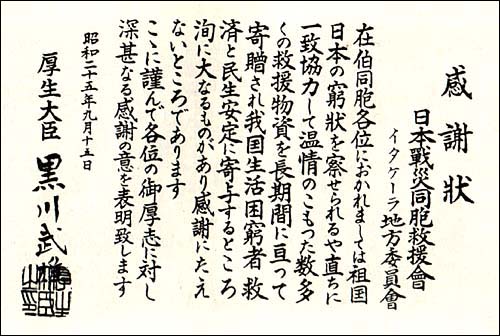 感謝狀
日本戰災同胞救援會
イタケーラ地方委員會
在伯同胞各位におかれましては祖国
日本の窮狀を察せられるや直ちに
一致協力して温情のこもった数多
くの救援物資を長期間に亘って
寄贈され我国生活困窮者救
済と民生安定に寄与するところ
洵に大なるものがあり感謝にたえ
ないところであります
こゝに謹んで各位の御厚志に対し
深甚なる感謝の意を表明致します
昭和二十五年九月十五日
厚生大臣 黒川武雄